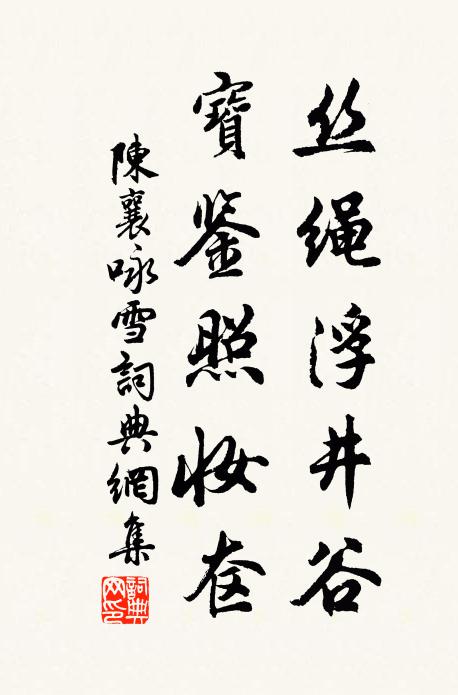 丝绳浮井谷
寶鉴照妆奁
陳襄咏雪詞典網集
詞典网印